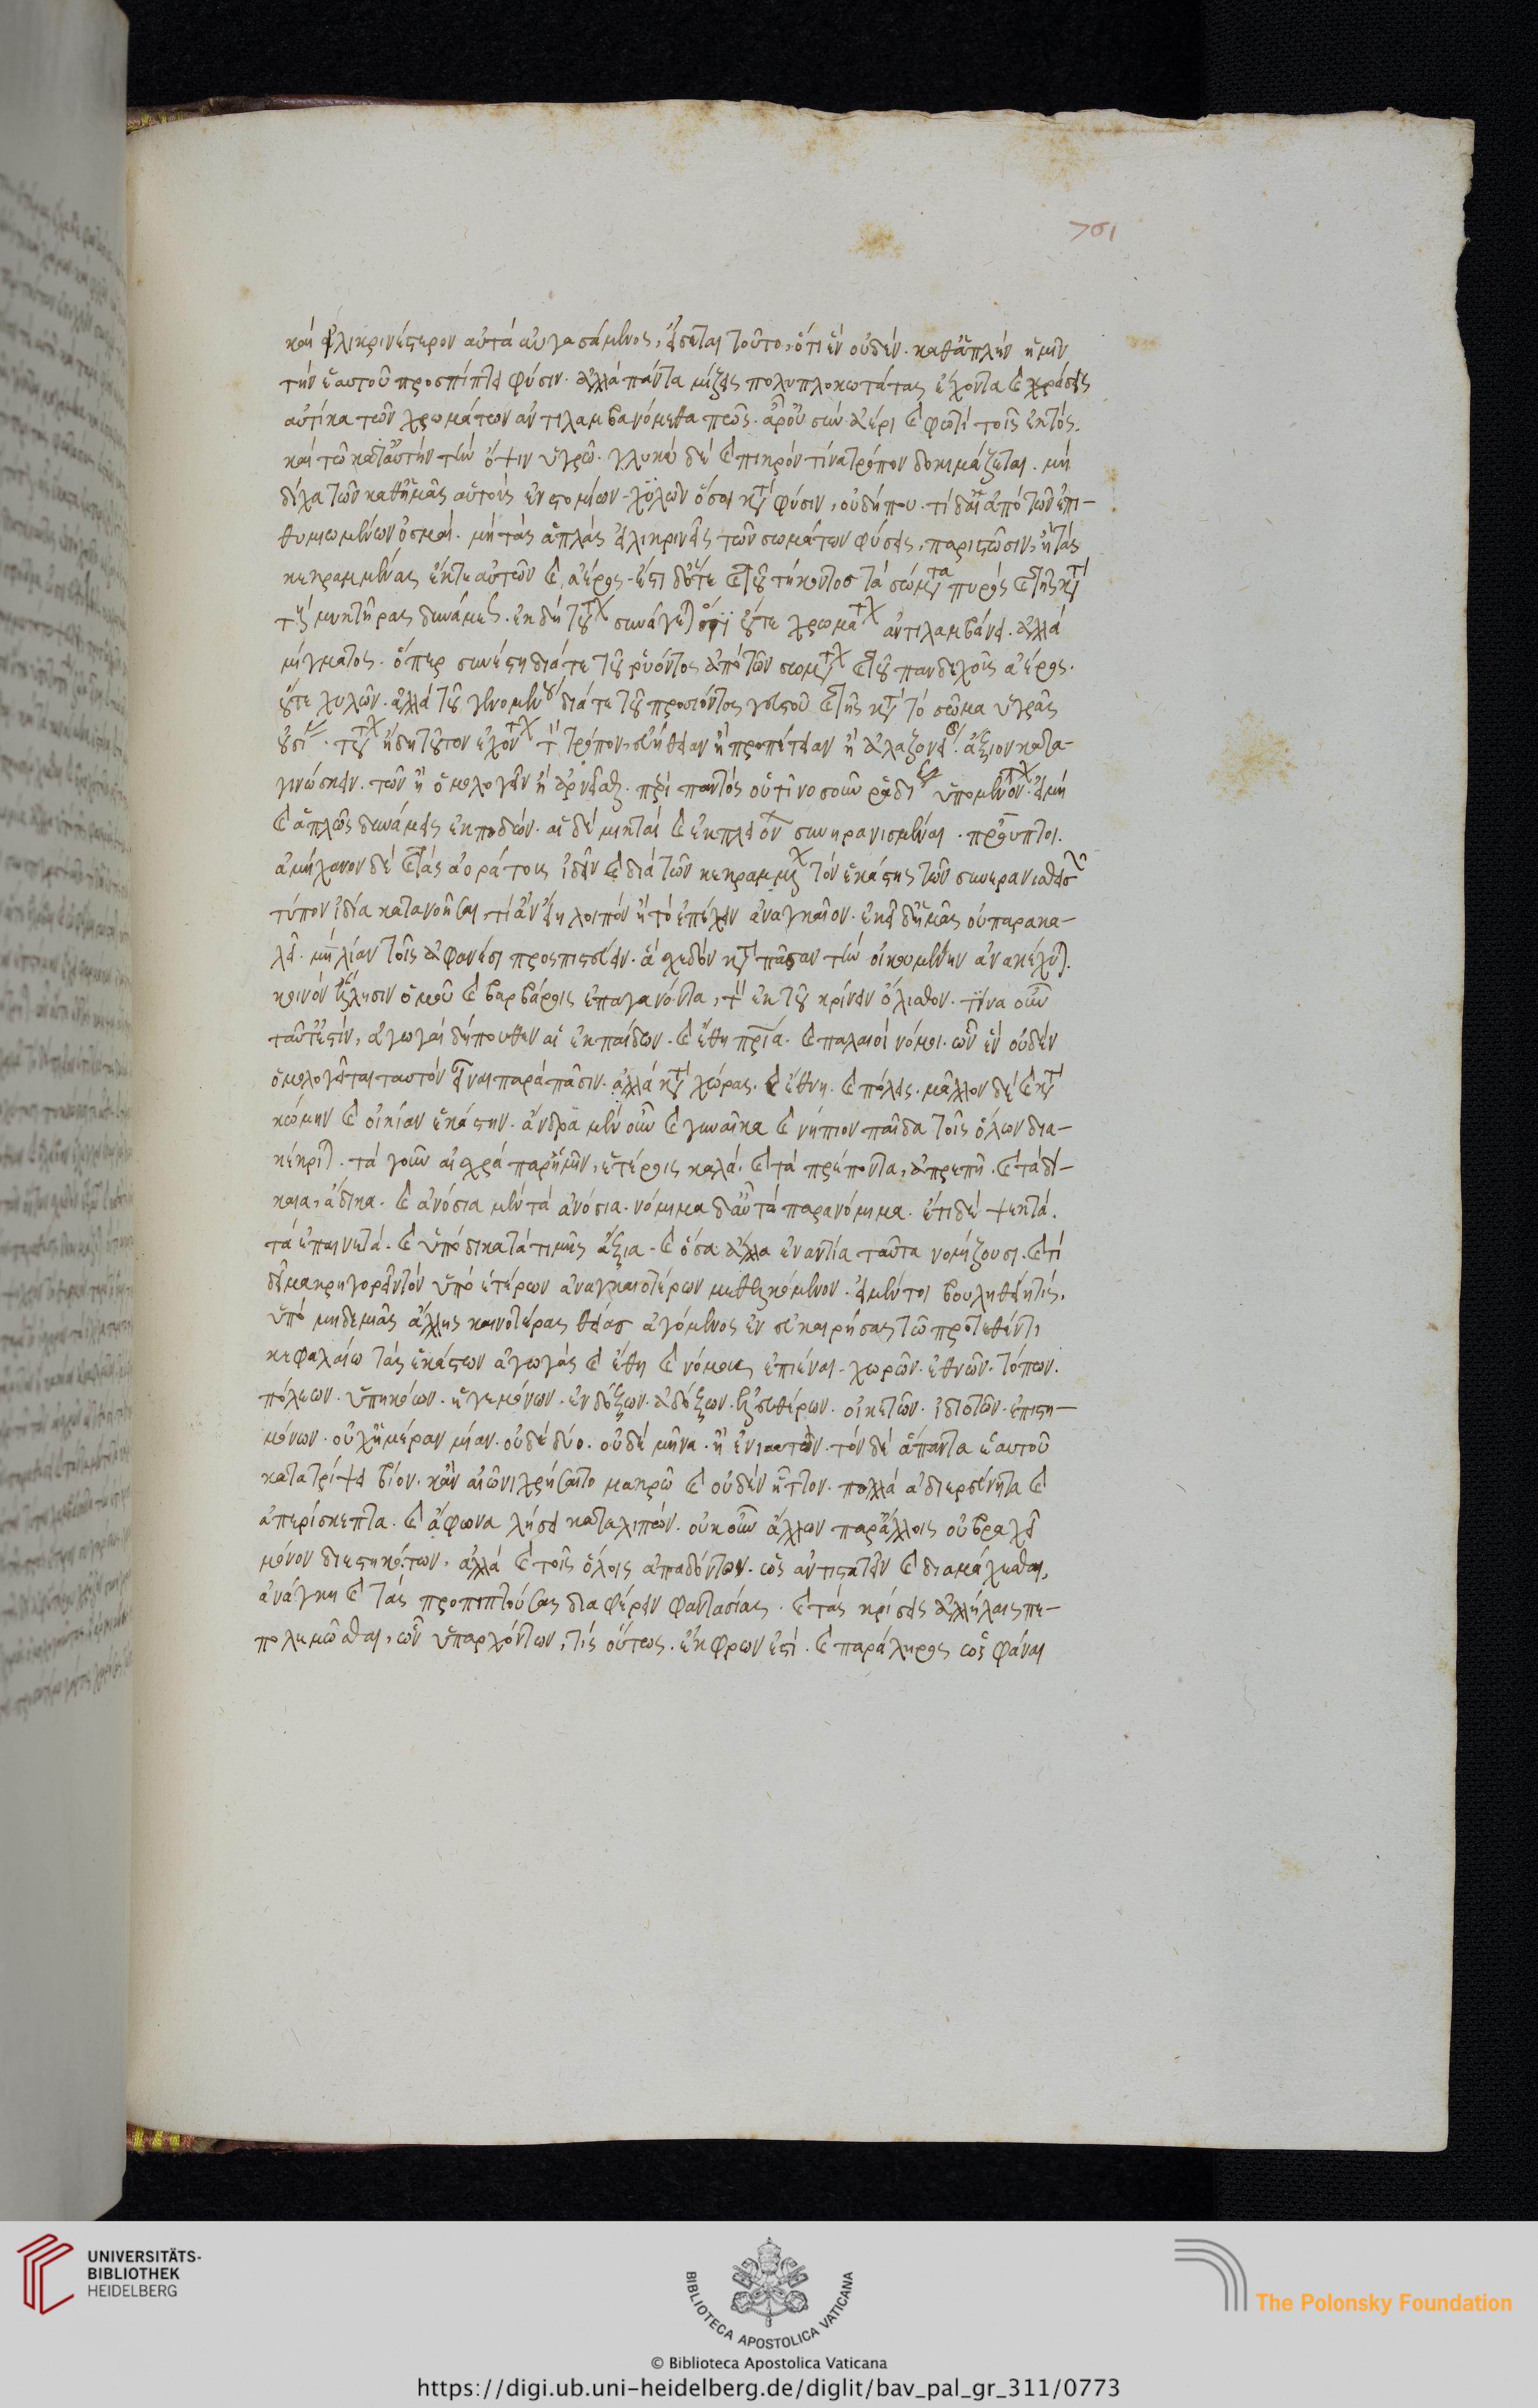 καὶ εἰλικρινέστερον αὐτὰ αὐγασάμενος, εἴσεται τοῦτο, ὅτι ἓν οὐδὲν. καθ᾽ ἁπλὴν ἡμῖν
τὴν ἑαυτοῦ προσπίπτει φύσιν. ἀλλὰ πάντα μίξεις πολυπλοκωτάτας ἔχοντα καὶ κράσεις
αὐτίκα τῶν χρωμάτων ἀντιλαμβανόμεθα πῶς. ἆρ᾽ οὐ σὺν ἀέρι καὶ φωτὶ τοῖς ἐκτός.
καὶ τῶ κατ᾽ αὐτὴν τὴν ὄψιν ὑγρῶ. γλυκὺ δὲ καὶ πικρὸν τίνα τρόπον δοκιμάζεται. μὴ
δίχα τῶν καθ᾽ ἡμᾶς αὐτοὺς ἐνστομίων χυλῶν ὅσοι κατὰ φύσιν, οὐδήπου. τί δαὶ ἀπὸ τῶν ἐπι-
θυμιωμένων ὀσμαὶ. μὴ τὰς ἁπλὰς εἰλικρινεῖς τῶν σωμάτων φύσεις, παριστῶσιν, ἢ τὰς
κεκραμμένας ἔκ τε αὐτῶν καὶ ἀέρος. ἔστι δ᾽ ὅτε καὶ τοῦ τήκοντος τὰ σώματα πυρὸς καὶ τῆς κατὰ
τοὺς μυκτῆρας δυνάμεως. ἐκ δὴ τούτων συνάγεται ὅτι οὔτε χρωμάτων ἀντιλαμβάνει. ἀλλὰ
μίγματος. ὅπερ συνέστη διά τε τοῦ ῥυόντος ἀπὸ τῶν σωμάτων καὶ τοῦ πανδεχοῦς ἀέρος.
οὔτε χυλῶν. ἀλλὰ τοῦ γενομένου διά τε τοῦ προσιόντος γευστοῦ καὶ τῆς κατὰ τὸ σῶμα ὑγρᾶς
οὐσίας. τούτων δὴ τοῦτον ἐχόντων τὸν τρόπον, εὐήθειαν ἢ προπέτειαν ἢ ἀλαζονείαν. ἄξιον κατα-
γινώσκειν. τῶν ἢ ὁμολογεῖν ἢ ἀρνεῖσθαι περὶ παντὸς οὑτινοσοῦν ῥαδίως ὑπομενόντων. εἰ μὴ
καὶ ἁπλῶς δυνάμεις ἐκποδών. αἱ δὲ μικταὶ καὶ ἐκ πλειόνων συνηρανισμέναι. προῦπτοι.
ἀμήχανον δὲ καὶ τὰς ἀοράτους ἰδεῖν καὶ διὰ τῶν κεκραμμένων τὸν ἑκάστης τῶν συνερανισθεισῶν
τύπον ἰδία κατανοῆσαι, τί ἂν εἴη λοιπὸν ἢ τὸ ἐπέχειν ἀναγκαῖον. ἐκεῖ δ᾽ ἡμᾶς οὐ παρακα-
λεῖ. μὴ λίαν τοῖς ἀφανέσι προσπιστεύειν. ἃ σχεδὸν κατὰ πᾶσαν τὴν οἰκουμένην ἀνακέχυται.
κοινὸν ἕλλησιν ὁμοῦ καὶ βαρβάροις ἐπάγοντα, τὸν ἐκ τοῦ κρίνειν ὄλισθον. τίνα οὖν
ταῦτ᾽ ἐστίν, ἀγωγαὶ δήπουθεν αἱ ἐκ παίδων. καὶ ἔθη πάτρια. καὶ παλαιοὶ νόμοι. ὧν ἓν οὐδὲν
ὁμολογεῖται ταυτὸν εἶναι παρὰ πᾶσιν. ἀλλὰ κατὰ χώρας. καὶ ἔθνη. καὶ πόλεις. μᾶλλον δὲ καὶ κατὰ
κώμην καὶ οἰκίαν ἑκάστην. ἄνδρα μὲν οὖν καὶ γυναῖκα καὶ νήπιον παῖδα τοῖς ὅλων δια-
κέκριται. τὰ γοῦν αἰσχρὰ παρ᾽ ἡμῖν, ἑτέροις καλά. καὶ τὰ πρέποντα, ἀπρεπῆ. καὶ τὰ δί-
καια, ἄδικα. καὶ ἀνόσια μὲν τὰ ἀνόσια. νόμιμα δ᾽ αὖ τὰ παράνόμιμα. ἔτι δὲ ψεκτὰ.
τὰ ἐπαινετά. καὶ ὑπόδικα τὰ τιμῆς ἄξια. καὶ ὅσα ἄλλα ἐναντία ταῦτα νομίζουσι. καὶ τί
δεῖ μακρηγορεῖν τὸν ὑπὸ ἑτέρων ἀναγκαιοτέρων μεθελκόμενον. εἰ μέντοι βουληθείη τίς,
ὑπὸ μηδεμιᾶς ἄλλης καινοτέρας θέας ἀγόμενος ἐνευκαιρήσας τῶ προτεθέντι
κεφαλαίω τὰς ἑκάστων ἀγωγὰς καὶ ἔθη καὶ νόμους ἐπιέναι. χωρῶν. ἐθνῶν. τόπων.
πόλεων. ὑπηκόων. ἡγεμόνων. ἐνδόξων. ἀδόξων. ἐλευθέρων. οἰκετῶν. ἰδιοτῶν. ἐπιστη-
μόνων. οὐχ ἡμέραν μίαν. οὐδὲ δύο. οὐδὲ μῆνα. ἢ ἐνιαυτὸν. τὸν δὲ ἅπαντα ἑαυτοῦ
κατατρίψει βίον. κἂν αἰῶνι χρήσαιτο μακρῶ καὶ οὐδὲν ἧττον. πολλὰ ἀδιερεύνητα καὶ
ἀπερίσκεπτα. καὶ ἄφωνα λήσει καταλιπών. οὐκοῦν ἄλλων παρ᾽ ἄλλοις οὐ βραχεῖ
μόνον διεστηκότων, ἀλλὰ καὶ τοῖς ὅλοις ἀπαδόντων. ὡς ἀντιστατεῖν καὶ διαμάχεσθαι,
ἀνάγκη καὶ τὰς προπιπτούσας διαφέρειν φαντασίας. καὶ τὰς κρίσεις ἀλλήλαις πε-
πολεμῶσθαι, ὧν ὑπαρχόντων, τίς οὕτως. ἔκφρων ἐστὶ. καὶ παράληρος ὡς φάναι
UNIVERSITÄTS-
BIBLIOTHEK
HEIDELBERG
BIBLIOTECA APOSTOLICA VATICANA
The Polonsky Foundation
© Biblioteca Apostolica Vaticana
https://digi.ub.uni-heidelberg.de/diglit/bav_pal_gr_311/0773